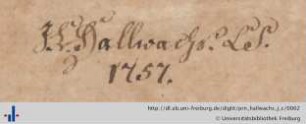 J. C. Hallwachs. LS.
1757.
http://dl.ub.uni-freiburg.de/diglit/pm_hallwachs_j_c/0002
© Universitätsbibliothek Freiburg